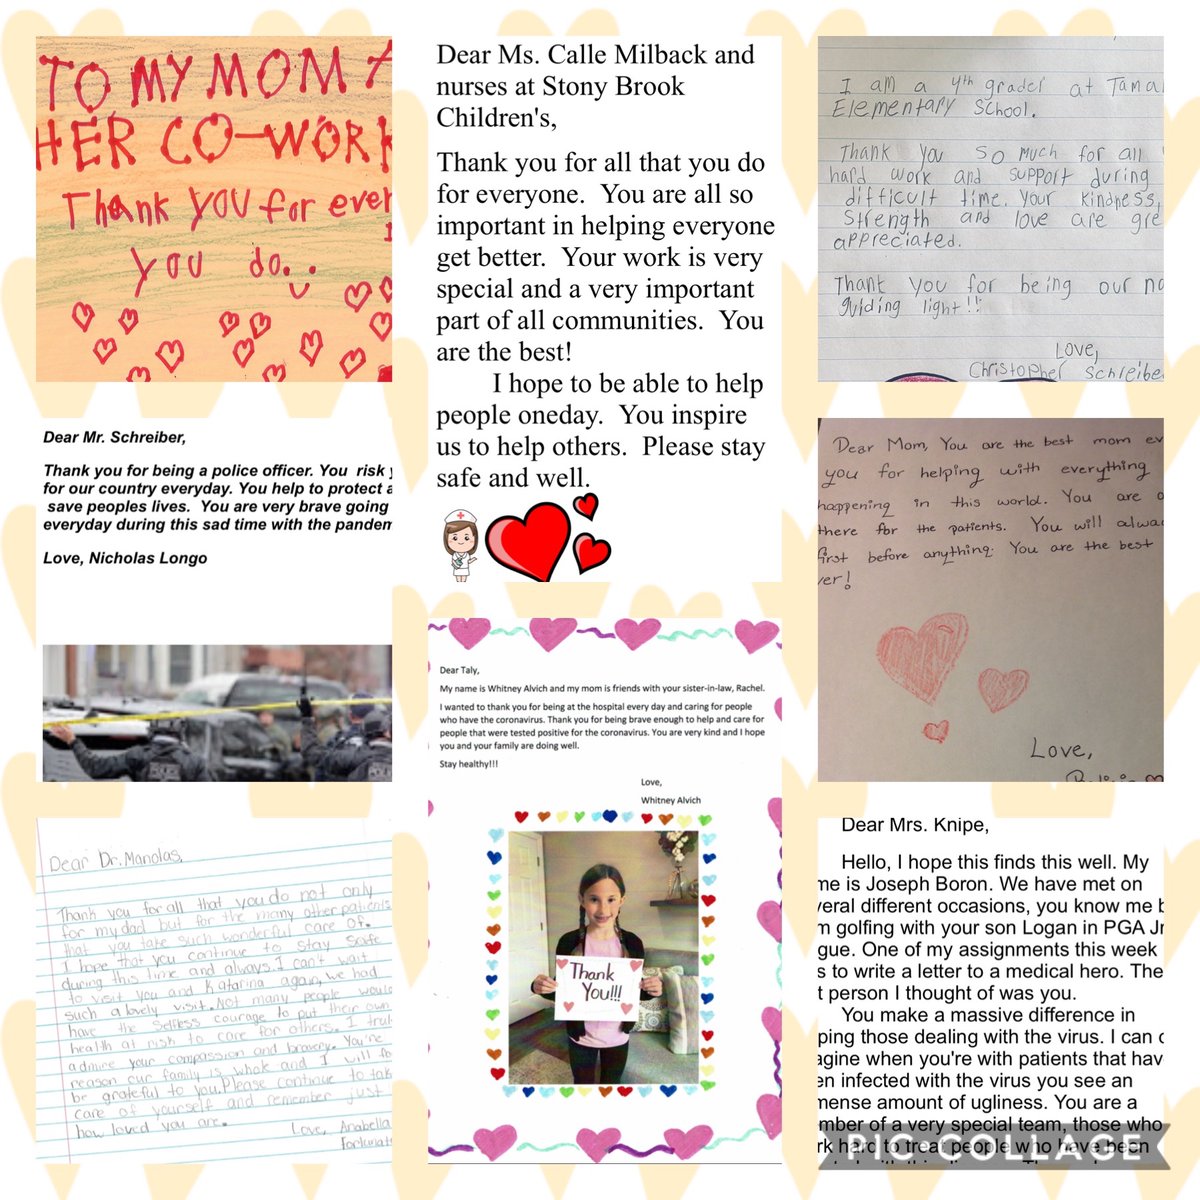 TO MY MOM
HER CO-WORK
Thank you for ever
you do..
Dear Ms. Calle Milback and
nurses at Stony Brook
Children's,
Thank you for all that you do
for everyone.  You are all so
important in helping everyone
get better.  Your work is very
special and a very important
part of all communities.  You
are the best!
I hope to be able to help
people oneday.  You inspire
us to help others.  Please stay
safe and well.
I am a 4th grader at Tama
Elementary School.
Thank you so much for all
hard work and support during
difficult time. Your kindness,
Strength and love are gre
appreciated.
Thank you for being our no
guiding light!!
Love,
Christopher Schreibe
Dear Mr. Schreiber,
Thank you for being a police officer. You  risk y
for our country everyday. You help to protect a
save peoples lives.  You are very brave going
everyday during this sad time with the pandem
Love, Nicholas Longo
Dear Mom, You are the best mom ev
you for helping with everything
happening in this world. You are
there for the patients. You will alwa
first before anything. You are the best
ver!
Love,
Dear Taly,
My name is Whitney Alvich and my mom is friends with your sister-in-law, Rachel.
I wanted to thank you for being at the hospital every day and caring for people
who have the coronavirus. Thank you for being brave enough to help and care for
people that were tested positive for the coronavirus. You are very kind and I hope
you and your family are doing well.
Stay healthy!!!
Love,
Whitney Alvich
Thank
You!!!
Dear Dr. Manolas,
Thank you for all that you do not only
for my dad but for the many other patients
that you take such wonderful care of.
I hope that you continue to stay safe
during this time and always. I can't wait
to visit you and Katarina again, we had
such a lovely visit. Not many people would
have the selfless courage to put their own
health at risk to care for others. I trul
admire your compassion and bravery. You're
reason our family is whole and I will fo
be grateful to you. Please continue to tak
care of yourself and remember just
how loved you are.
Love, Anabella
Fortunat
Dear Mrs. Knipe,
Hello, I hope this finds this well. My
me is Joseph Boron. We have met on
veral different occasions, you know me b
m golfing with your son Logan in PGA Jr
gue. One of my assignments this week
s to write a letter to a medical hero. The
t person I thought of was you.
You make a massive difference in
ping those dealing with the virus. I can o
agine when you're with patients that hav
en infected with the virus you see an
mense amount of ugliness. You are a
mber of a very special team, those who
rk hard to treat people who have been
PIC COLLAGE